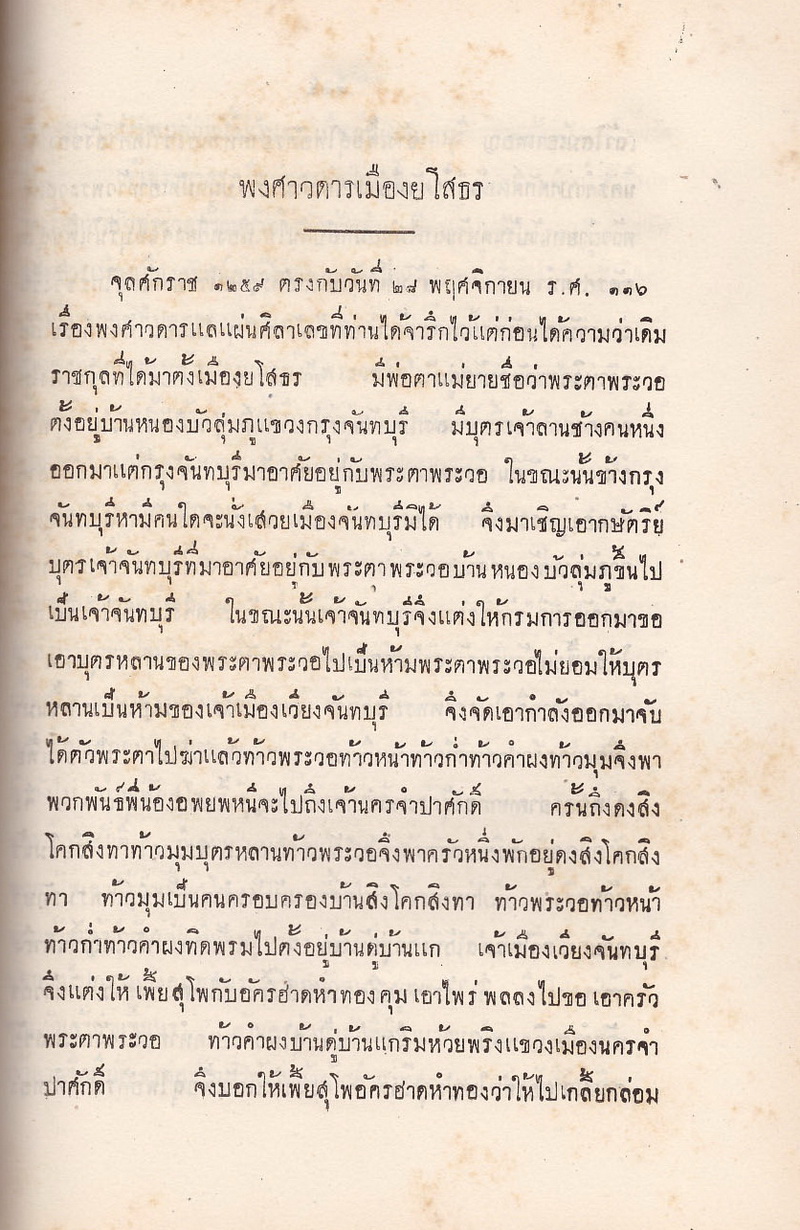 พงศาวดารเมืองยโสธร
จุลศักราช ๑๒๕๙ ตรงกับวันที่ ๒๘ พฤศจิกายน ร.ศ. ๑๑๖
เรื่องพงศาวดารแลแผ่นศิลาเลขที่ท่านได้จาฤกไว้แต่ก่อนได้ความว่าเดิม
ราชกุลที่ได้มาตั้งเมืองยโสธร มีพ่อตาแม่ยายชื่อว่าพระตาพระวอ
ตั้งอยู่บ้านหนองบัวลุ่มภูแขวงกรุงจันทบุรี มีบุตรเจ้าลานช้างคนหนึ่ง
ออกมาแต่กรุงจันทบุรีมาอาศัยอยู่กับพระตาพระวอ ในขณะนั้นข้างกรุง
จันทบุรีหามีคนใดจะนั่งเสวยเมืองจันทบุรีมิได้ จึ่งมาเชิญเอากษัตริย์
บุตรเจ้าจันทบุรีที่มาอาศัยอยู่กับพระตาพระวอบ้านหนองบัวลุ่มภูขึ้นไป
เปนเจ้าจันทบุรี ในขณะนั้นเจ้าจันทบุรีจึ่งแต่งให้กรมการออกมาขอ
เอาบุตรหลานของพระตาพระวอไปเปนห้ามพระตาพระวอไม่ยอมให้บุตร
หลานเปนห้ามของเจ้าเมืองเวียงจันทบุรี จึ่งจัดเอากำลังออกมาจับ
ได้ตัวพระตาไปฆ่าแล้วท้าวพระวอท้าวหน้าท้าวก่ำท้าวคำผงท้าวมุมจึงพา
พวกพันธ์พี่น้องอพยพหนีจะไปถึงเจ้านครจำปาศักดิ์ ครั้นถึงดงสิง
โคกสิงทาท้าวมุมบุตรหลานท้าวพระวอจึ่งพาครัวหนึ่งพักอยู่ดงสิงโคกสิง
ทา ท้าวมุมเปนคนครอบครองบ้านสิงโคกสิงทา ท้าวพระวอท้าวหน้า
ท้าวก่ำท้าวคำผงทิดพรมไปตั้งอยู่บ้านดู่บ้านแก เจ้าเมืองเวียงจันทบุรี
จึ่งแต่งให้ เพี้ยสุโพกับอัครฮาดหำทอง คุม เอาไพร่ พลลงไปขอ เอาครัว
พระตาพระวอ ท้าวคำผงบ้านดู่บ้านแกริมห้วยพรึงแขวงเมืองนครจำ
ปาศักดิ์ จึ่งบอกให้เพี้ยสุโพอัครฮาดหำทองว่าให้ไปเกลี้ยกล่อม